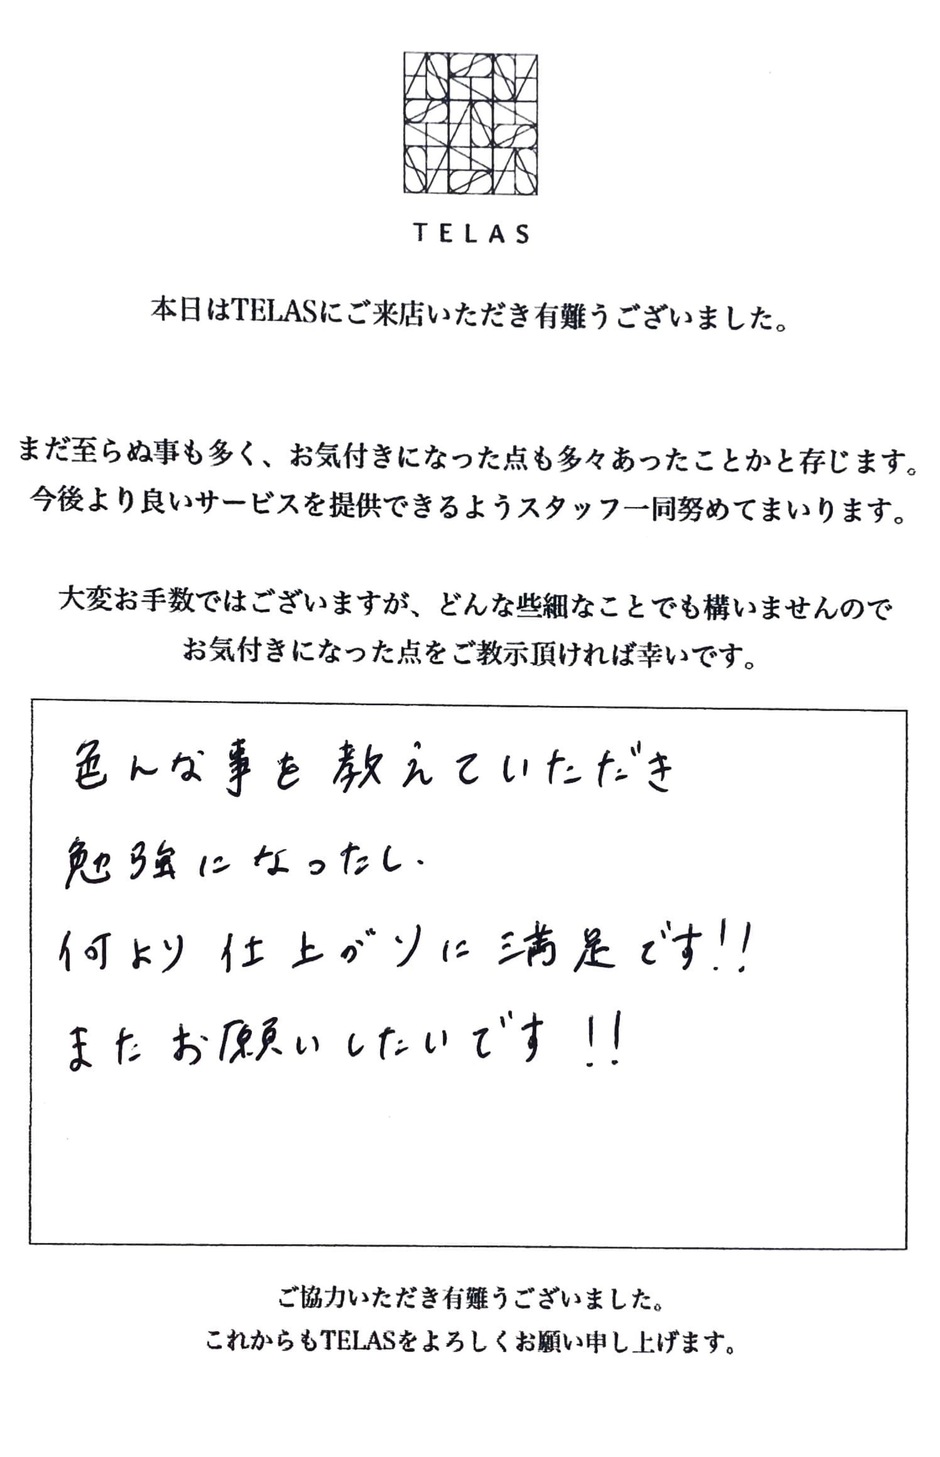 TELAS
本日はTELASにご来店いただき有難うございました。
まだ至らぬ事も多く、お気付きになった点も多々あったことかと存じます。
今後より良いサービスを提供できるようスタッフ一同努めてまいります。
大変お手数ではございますが、どんな些細なことでも構いませんので
お気付きになった点をご教示頂ければ幸いです。
色んな事を教えていただき
勉強になったし、
何より仕上がりに満足です!!
またお願いしたいです!!
ご協力いただき有難うございました。
これからもTELASをよろしくお願い申し上げます。